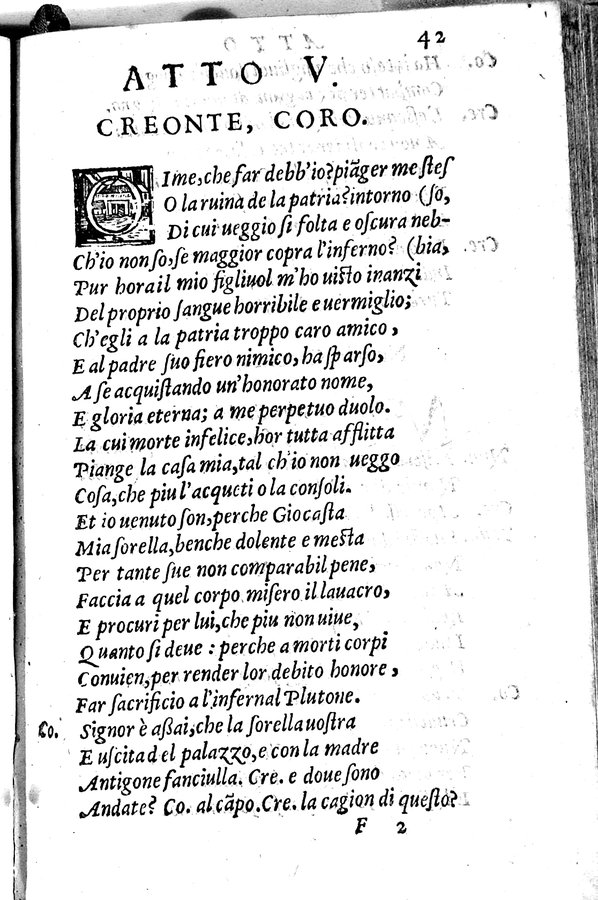 42
ATTO V.
CREONTE, CORO.
OIme, che far debb'io? piãger me steſ
O la ruina de la patria? intorno (ſo,
Di cui ueggio ſi folta e oſcura neb-
Ch'io non ſo, ſe maggior copra l'inferno? (bia,
Pur hora il mio figliuol m'ho uisto inanzi
Del proprio ſangue horribile e uermiglio;
Ch'egli a la patria troppo caro amico,
E al padre ſuo fiero nimico, ha ſparſo,
A ſe acquiſtando un'honorato nome,
E gloria eterna; a me perpetuo duolo.
La cui morte infelice, hor tutta afflitta
Piange la caſa mia, tal ch'io non ueggo
Coſa, che piu l'acqueti o la conſoli.
Et io uenuto ſon, perche Giocaſta
Mia ſorella, benche dolente e mesta
Per tante ſue non comparabil pene,
Faccia a quel corpo miſero il lauacro,
E procuri per lui, che piu non uiue,
Quanto ſi deue: perche a morti corpi
Conuien, per render lor debito honore,
Far ſacrificio a l'infernal Plutone.
Co. Signor è aßai, che la ſorella uoſtra
E uſcita del palazzo, e con la madre
Antigone fanciulla. Cre. e doue ſono
Andate? Co. al cãpo. Cre. la cagion di queſto?
F 2